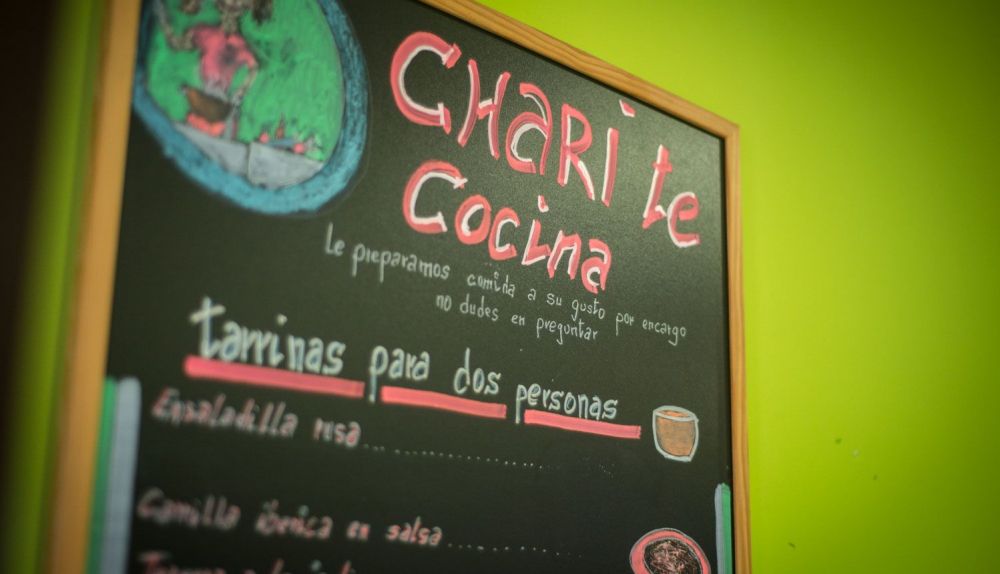 CHARI te
Cocina
Le preparamos comida a su gusto por encargo
no dudes en preguntar
tarrinas para dos personas
Ensaladilla rusa..................
Carrilla ibérica en salsa..............